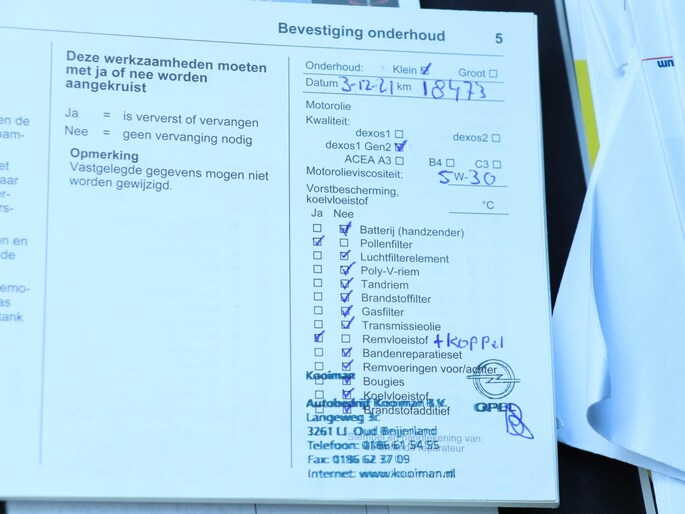 Bevestiging onderhoud 5
Deze werkzaamheden moeten
met ja of nee worden
aangekruist
Ja = is ververst of vervangen
Nee = geen vervanging nodig
Opmerking
Vastgelegde gegevens mogen niet
worden gewijzigd.
Onderhoud: Klein Groot
Datum 3-12-21 km 18473
Motorolie
Kwaliteit:
dexos1 dexos2
dexos1 Gen2
ACEA A3 B4 C3
Motorolieviscositeit: 5W-30
Vorstbescherming,
koelvloeistof °C
Ja Nee
Batterij (handzender)
Pollenfilter
Luchtfilterelement
Poly-V-riem
Tandriem
Brandstoffilter
Gasfilter
Transmissieolie
Remvloeistof +koppel
Bandenreparatieset
Remvoeringen voor/achter
Kooiman
Bougies
Koelvloeistof
Autobedrijf Kooiman B.V.
Brandstofadditief
OPEL
Langeweg 3c
3261 LJ Oud Beijerland
Telefoon: 0186 61 54 55
Fax: 0186 62 37 09
Internet: www.kooiman.nl
en de
am-
et
aar
er-
rs-
en en
de
emo-
as
tank